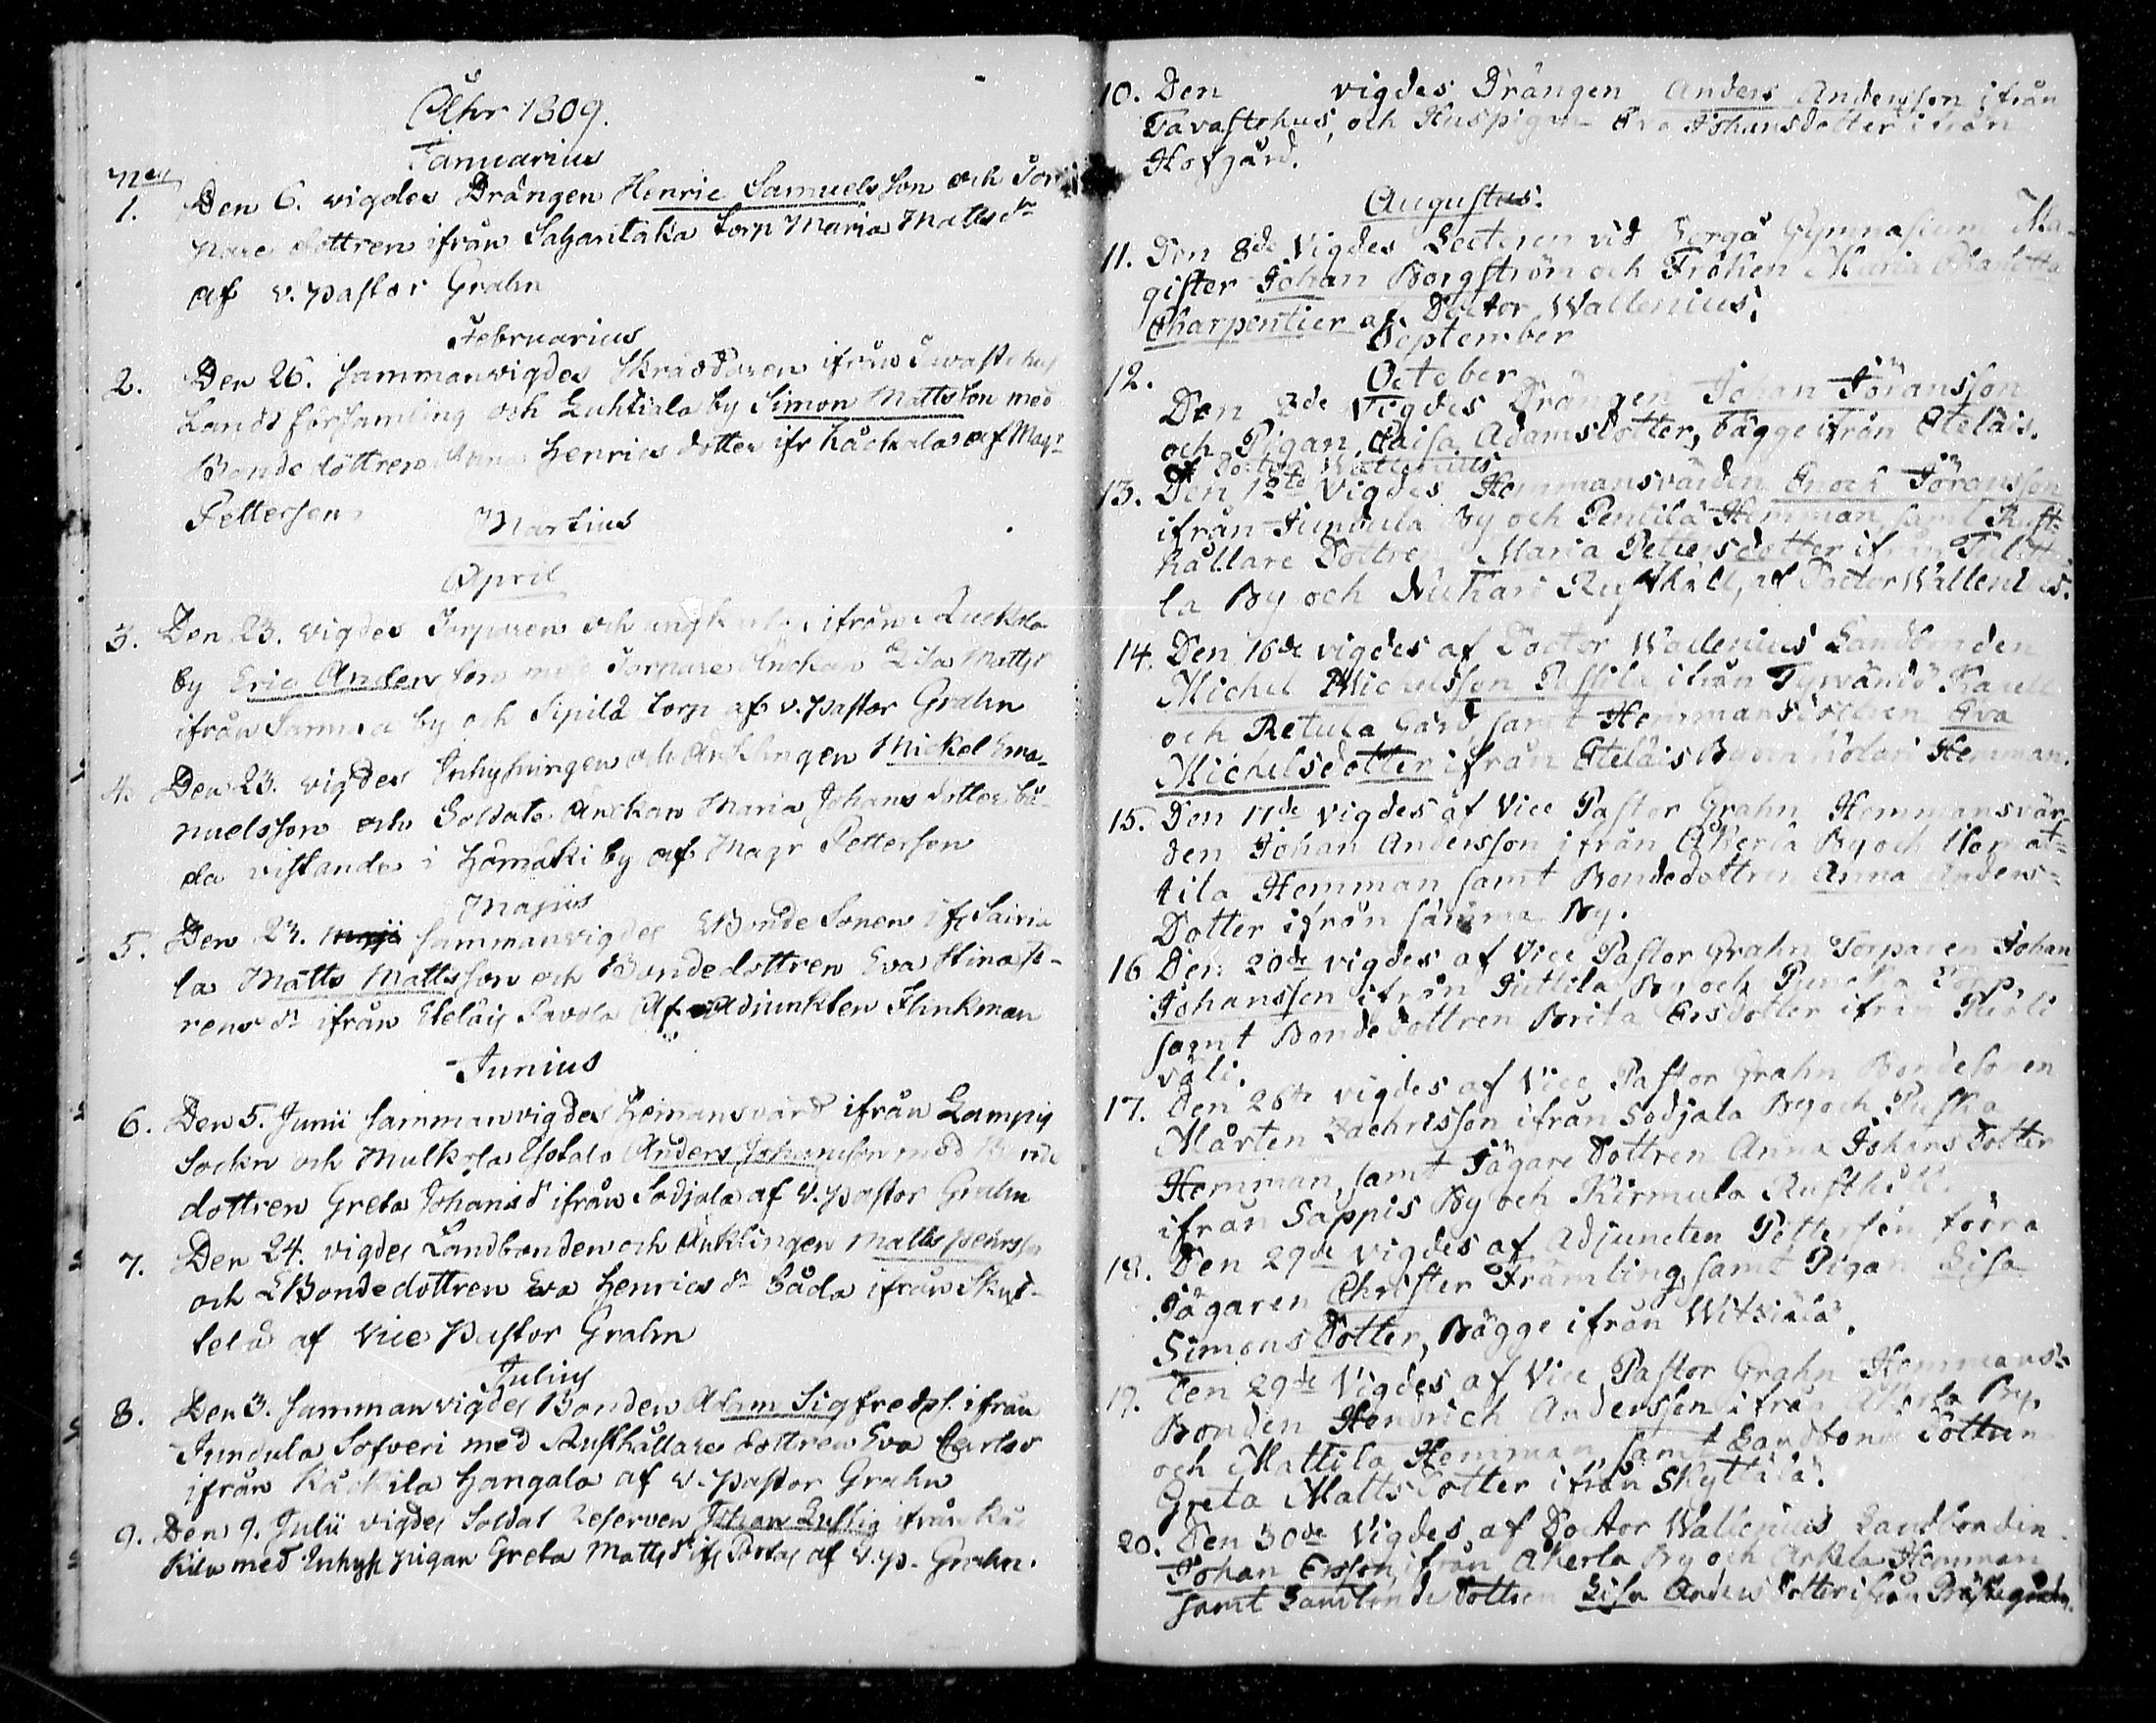 Åhr 1809.
Januarius
N:o
1. Den 6. vigdes Drängen Henric Samuelsson och Tor-
pare dottren ifrån Saharitaka torp Maria Matts dr
af v. pastor Grahn
Februarius
2. Den 26. sammanvigdes Skräddaren ifrån Tavastehus
Lands församling och Luhtiala by Simon Mattsson med
Bonde dottren Anna Henrics dotter ifr Käckala af Magr
Pettersen
Martius
April
3. Den 23. vigdes Torparen och ifrån
by Eric Andersson med Torpare Änckan Lisa Mattsdr
ifrån samma by och Sipilä torp af v. pastor Grahn
4. Den 23. vigdes Inhysningen och Äncklingen Mickel Ema-
nuelsson och Soldate Änckan Maria Johans dotter bå-
da vistande i Hömäki by af Magr Pettersen
Majus
5. Den 23. Maji sammanvigdes Bonde Sonen ifr Sairia
la Matts Mattsson och Bondedottren Eva Stina
rens dr ifrån Eteläis Pavola Af Adjunkten Flinkman
Junius
6. Den 5. Junii sammanvigdes Hemansvärd ifrån Lampis
Sockn och Mulkola Ylotalo Anders Johansson med Bonde
dottren Greta Johans dr ifrån Sodjala af v. pastor Grahn
7. Den 24. vigdes Landbonden och Äncklingen Matts Pehrsson
och Bondedottren Eva Henrics dr båda ifrån Skyt-
telä af Vice Pastor Grahn
Julius
8. Den 3. sammanvigdes Bonden Adam Sigfredss. ifrån
Jundula Sofveri med Rusthållare dottren Eva Carlsdr
ifrån Käckila Hangala af v. pastor Grahn
9. Den 9. Julii vigdes Soldat Reserven Johan Lustig ifrån Käc
kila med Inhys pigan Greta Matts dr ifr Portas af v. p. Grahn.
10. Den vigdes Drängen Anders Andersson ifrån
Tavastehus, och Huspigan Eva Johansdotter ifrån
Hofgård.
Augustus.
11. Den 8de Vigdes Lectoren vid Borgå Gymnasium Ma-
gister Johan Borgström och Fröken Maria Charlotta
Charpentier af Doctor Wallenius.
September
October
12.
Den 3de Vigdes Drängen Johan Jöransson
och Pigan Caisa Adamsdotter, bägge ifrån Eteläis.
af Doctor Wallenius
13. Den 12te Vigdes Hemmansvärden Enoch Jöransson
ifrån Jundula By och Pentilä Hemman, samt Rust-
hållare Dottren Maria Pettersdotter ifrån
la By och Nickari Rusthåll, af Doctor Wallenius.
14. Den 16de vigdes af Doctor Wallenius Landbonden
Michel Michelsson Passile ifrån Tyrvändö Kapell
och Retula Gård, samt Hemmans dottren Eva
Michelsdotter ifrån Eteläis By och Hemman.
15. Den 17de vigdes af Vice Pastor Grahn Hemmansvär-
den Johan Andersson ifrån Åkerla By och
tila Hemman samt Bondedottren Anna Anders-
Dotter ifrån samma By.
16 Den 20de vigdes af Vice Pastor Grahn Torparen Johan
Johansson ifrån Juttila By och Torp,
samt Bonde Dottren Brita Ersdotter ifrån
väli.
17. Den 26te vigdes af Vice Pastor Grahn Bondesonen
Mårten Zachrisson ifrån Sodjala By och
Hemman, samt Jägare Dottren Anna Johans Dotter
ifrån Sappis By och Kirmula Rusthåll.
18. Den 29de vigdes af Adjuncten Pettersen förra
Jägaren Christer Främling, samt Pigan Lisa
Simons Dotter, Bägge ifrån Witsiälä.
19. Den 29de Vigdes af Vice Pastor Grahn Hemmans-
Bonden Hendrich Andersson ifrån Åkerla By,
och Mattila Hemman, samt Landbonde Dottren
Greta Matts Dotter ifrån Skyttälä.
20. Den 30de Vigdes af Doctor Wallenius Landbonden
Johan Ersson ifrån Åkerla By och Arkela Hemman
samt Landbonde Dottren Lisa Anders Dotter ifrån Prästegården.